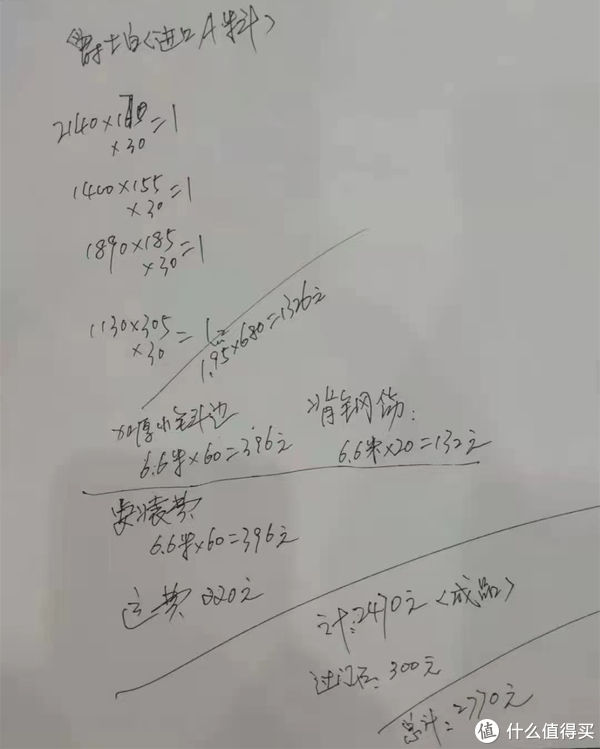 爵士白(进口A料)
2140×110=1
×30
1400×155=1
×30
1890×185=1
×30
1130×305=1
×30
1.95m²×680=1326元
加厚小斜边
6.6米×60=396元
背钢筋:
6.6米×20=132元
安装费
6.6米×60=396元
运费 220元
计:2470元<成品>
过门石:300元
总计:2770元
值 什么值得买